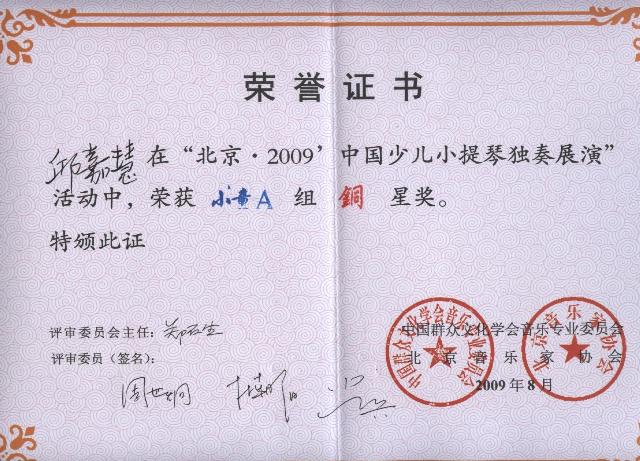 荣誉证书
邱嘉慧在“北京·2009’中国少儿小提琴独奏展演”
活动中，荣获 小童A 组 銅 星奖。
特颁此证
评审委员会主任：
评审委员（签名）：
周世炯
中国群众文化学会音乐专业委员会
北京音乐家协会
2009年8月
中国群众文化学会音乐专业委员会
北京音乐家协会